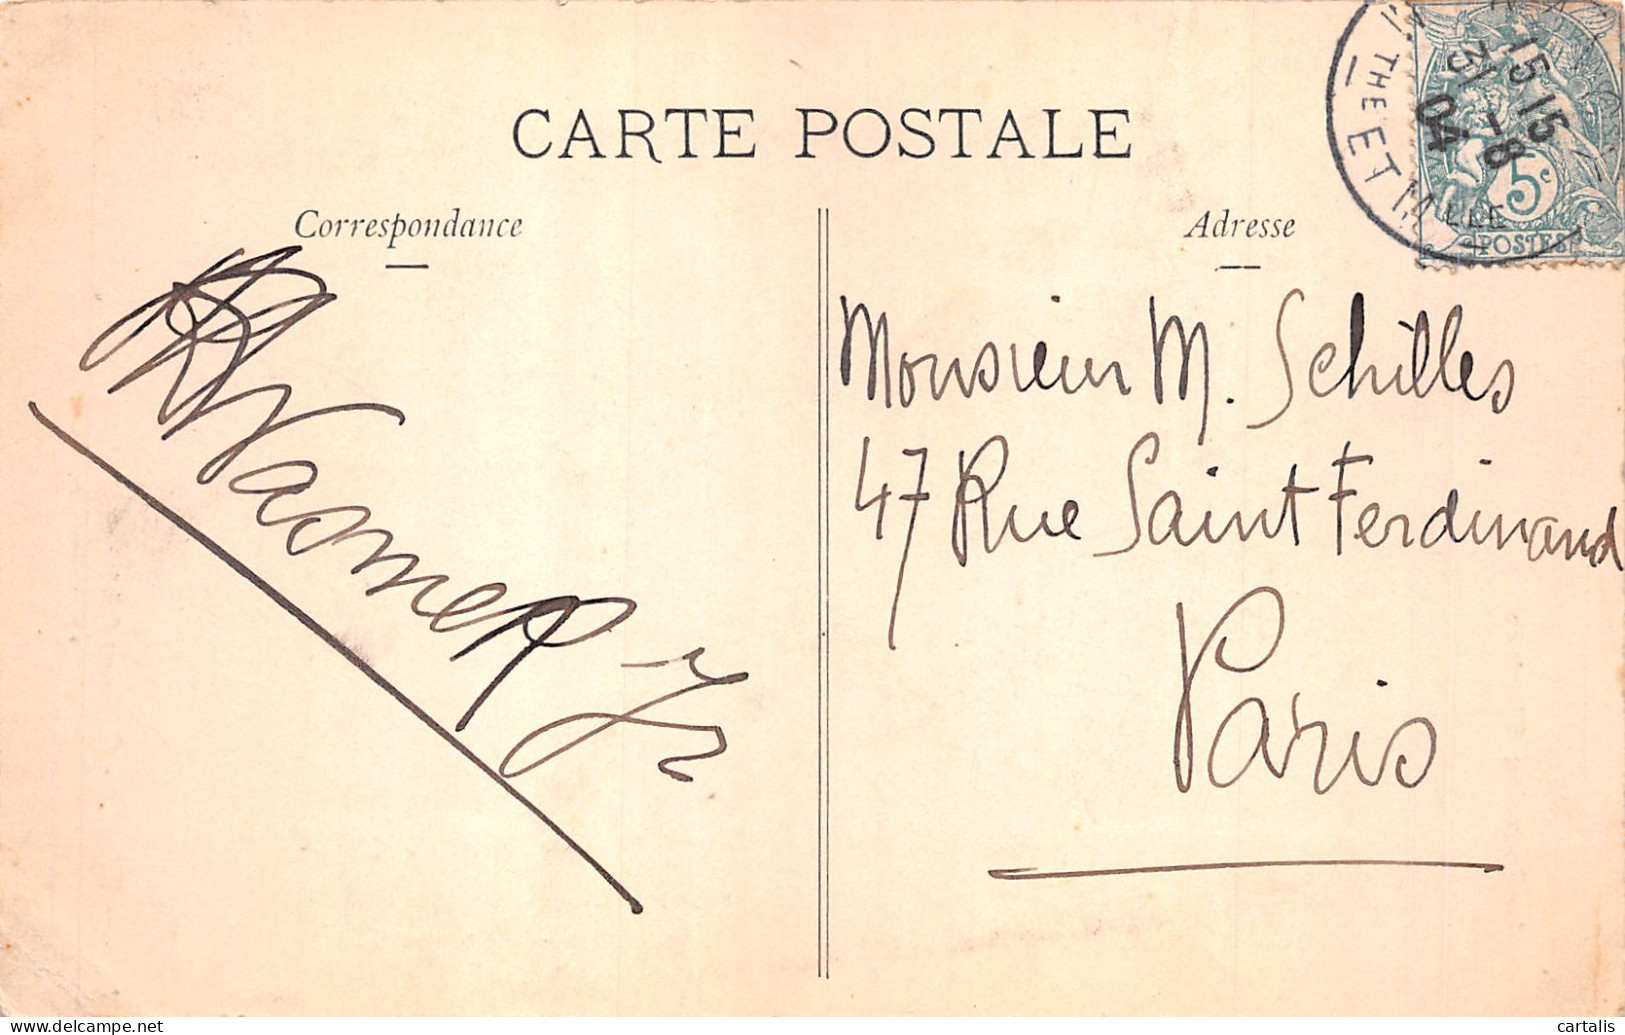 CARTE POSTALE
Correspondance
Adresse
15 15
31 -8
04
THE ET M LLE
5c
POSTES
Wasmer Jr
Monsieur M. Schilles
47 Rue Saint Ferdinand
Paris
delcampe.net
cartalis